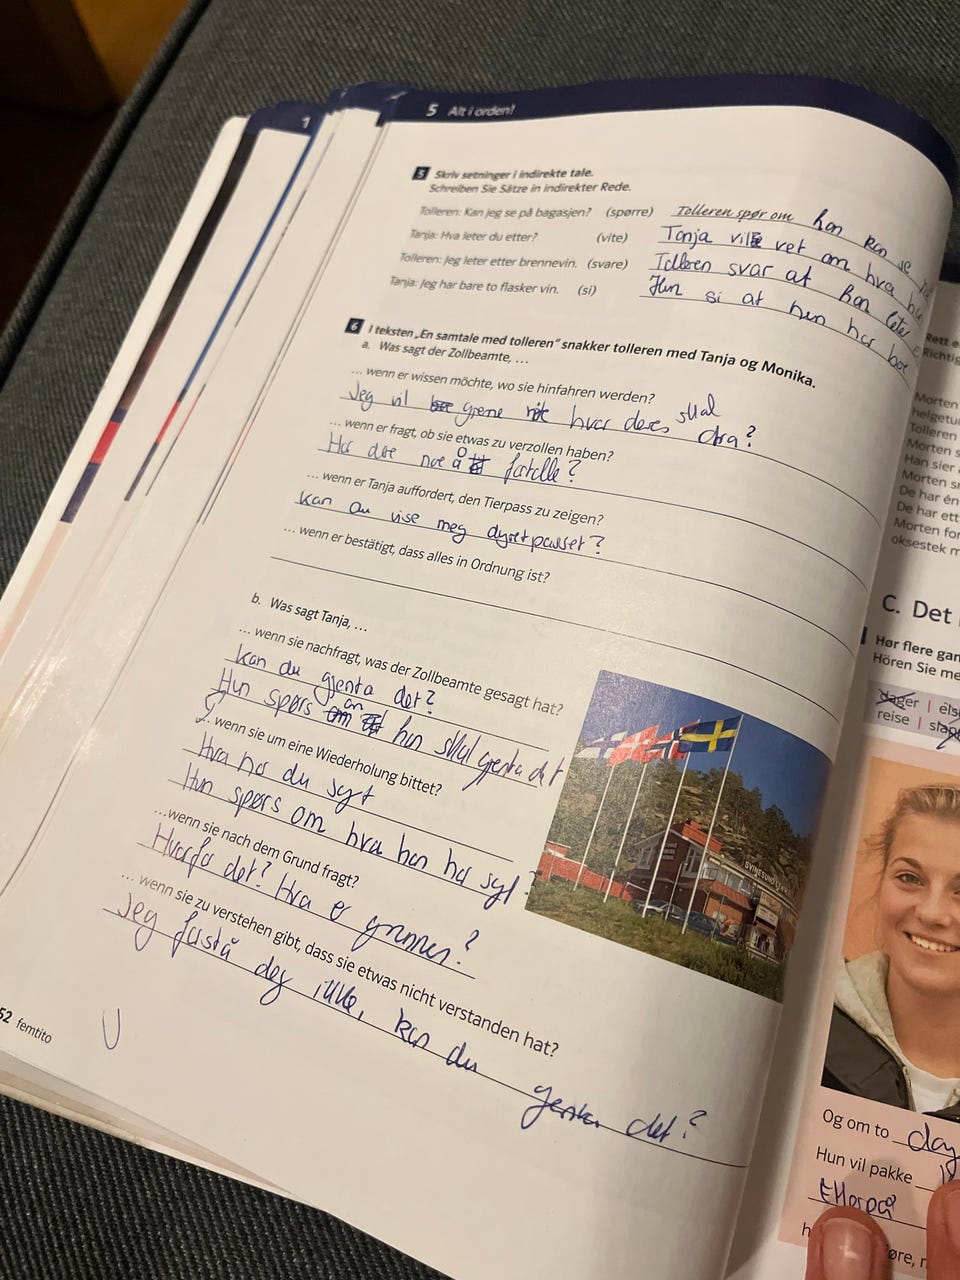 1
5 Alt i orden!
5 Skriv setninger i indirekte tale.
Schreiben Sie Sätze in indirekter Rede.
Tolleren: Kan jeg se på bagasjen? (spørre) Tolleren spør om han kan se
Tanja: Hva leter du etter? (vite) Tanja vil vet om hva
Tolleren: Jeg leter etter brennevin. (svare) Tolleren svar at han leter
Tanja: Jeg har bare to flasker vin. (si) Hun si at hun har bare
6 I teksten „En samtale med tolleren“ snakker tolleren med Tanja og Monika.
a. Was sagt der Zollbeamte, …
… wenn er wissen möchte, wo sie hinfahren werden?
Jeg vil grene hvor deres skal dra?
… wenn er fragt, ob sie etwas zu verzollen haben?
Har dere noe å fortelle?
… wenn er Tanja auffordert, den Tierpass zu zeigen?
kan du vise meg dyretpasset?
… wenn er bestätigt, dass alles in Ordnung ist?
b. Was sagt Tanja, …
… wenn sie nachfragt, was der Zollbeamte gesagt hat?
kan du gjenta det?
Hun spørs han skal gjenta det
… wenn sie um eine Wiederholung bittet?
Hva har du sagt
Hun spørs om hva han har sagt?
… wenn sie nach dem Grund fragt?
Hvorfor det? Hva er grunnen?
… wenn sie zu verstehen gibt, dass sie etwas nicht verstanden hat?
Jeg forstå deg ikke, kan du gjenta det?
52 femtito
SVINESUND
Rett e
Richtig
Morten
helgetur
Tolleren
Morten s
Han sier
Morten sn
De har én
De har ett
Morten for
oksestek m
C. Det
Hør flere gan
Hören Sie me
dager | els
reise | slapp
Og om to dag
Hun vil pakke
Etterpå
h øre, n